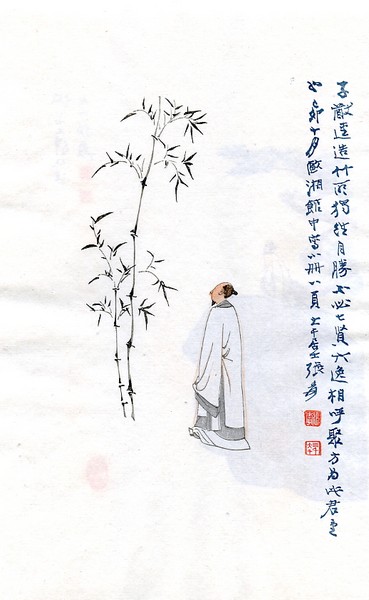 子猷逕造竹所獨自勝不必七賢六逸相呼聚方為此君
也己卯十月湘館中寫小冊八頁大千居士張爰